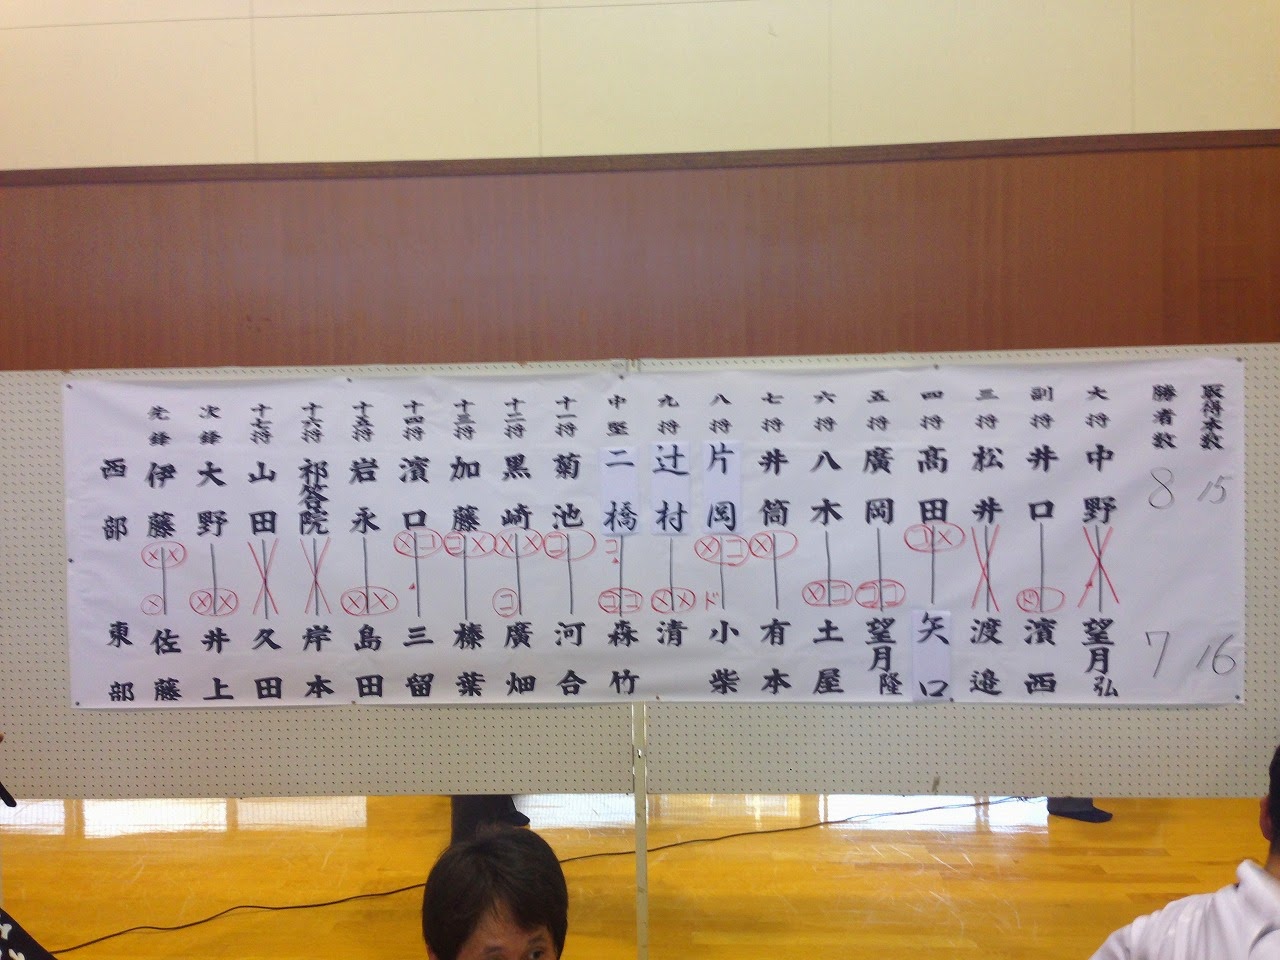 取得本数
勝者数
大将
副将
三将
四将
五将
六将
七将
八将
九将
中堅
十一将
十二将
十三将
十四将
十五将
十六将
十七将
次鋒
先鋒
15
8
中野
井口
松井
高田
廣岡
八木
井筒
片岡
辻村
二橋
菊池
黒崎
加藤
濱口
岩永
祁答院
山田
大野
伊藤
西部
コメ
メ
メコ
コ
コ
メメ
コメ
メコ
メメ
ド
ココ
メコ
ド
メメ
ココ
コ
メメ
メメ
メ
16
7
望月弘
濱西
渡邉
矢口
望月隆
土屋
有本
小柴
清
森竹
河合
廣畑
榛葉
三留
島田
岸本
久田
井上
佐藤
東部